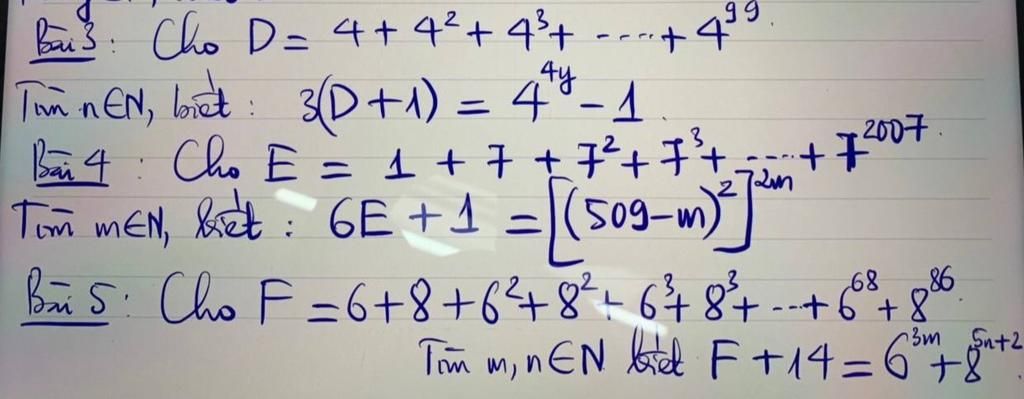 Bài 3: Cho D = 4 + 4² + 4³ + ----- + 4⁹⁹.
Tìm n∈N, biết: 3(D+1) = 4⁴ʸ - 1
Bài 4: Cho E = 1 + 7 + 7² + 7³ + ----- + 7²⁰⁰⁷.
Tìm m∈N, biết: 6E + 1 = [(509-m)²]²ᵐ
Bài 5: Cho F = 6+8+6²+8²+6³+8³+---+6⁶⁸+8⁸⁶.
Tìm m, n∈N biết F+14 = 6³ᵐ+8⁵ⁿ⁺²